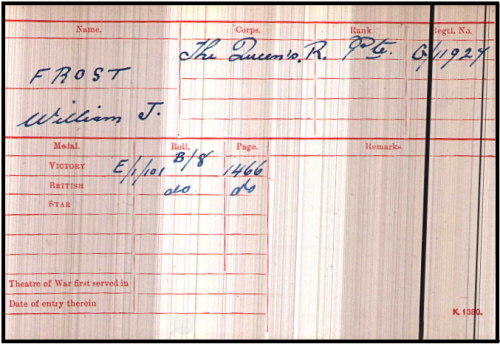 Name. Corps. Rank Regtl. No.
FROST The Queen's. R. Pte. G/11924
William J.
Medal. Roll. Page. Remarks.
VICTORY E/1/101 B/8 1466
BRITISH do do
STAR
Theatre of War first served in
Date of entry therein
K. 1380.